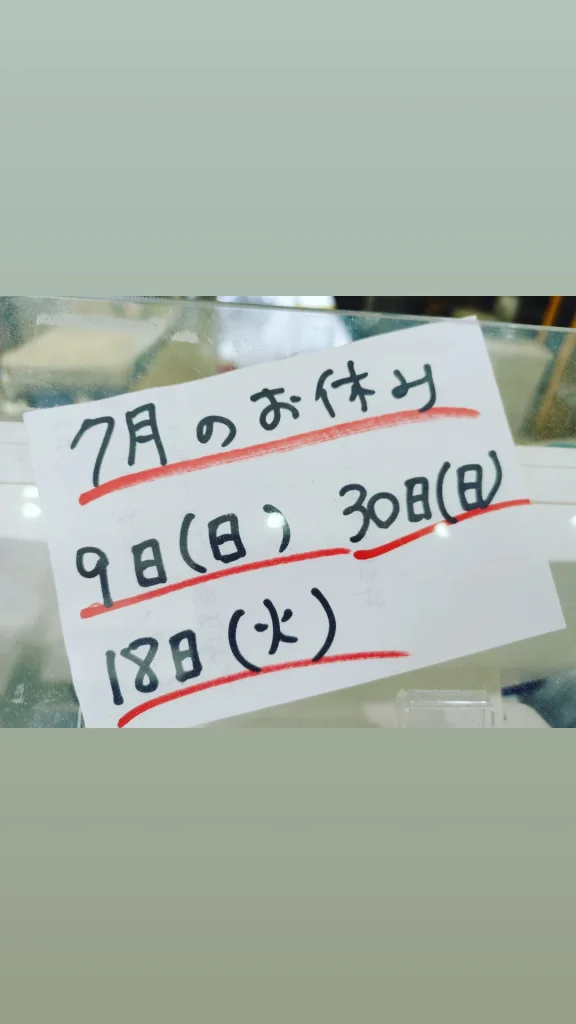 7月のお休み
9日(日) 30日(日)
18日(火)